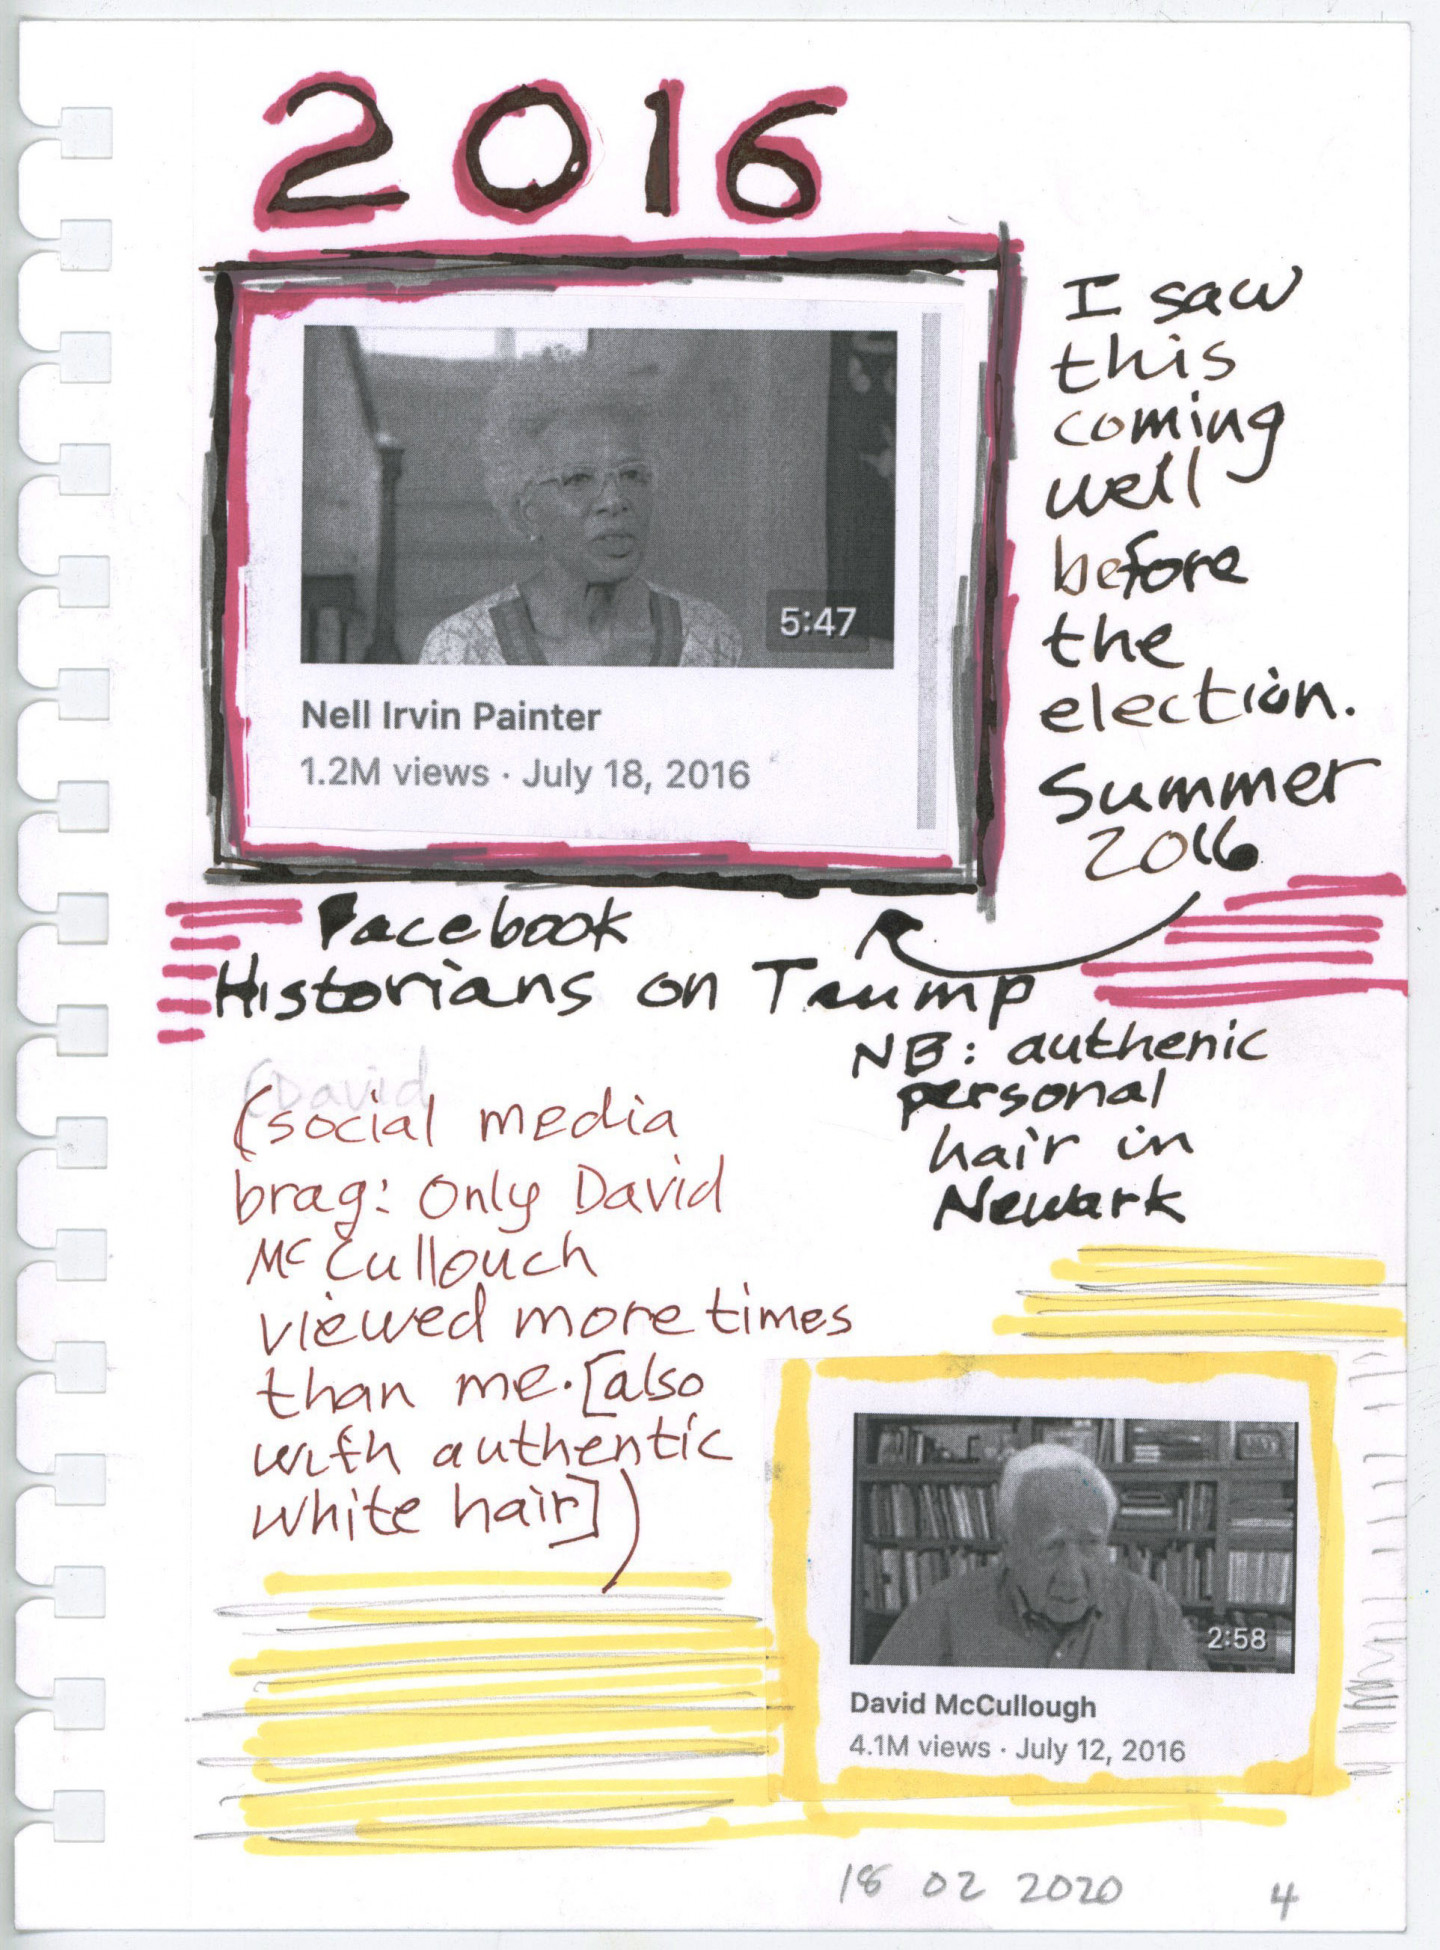 2016
5:47
Nell Irvin Painter
1.2M views · July 18, 2016
I saw
this
coming
well
before
the
election.
Summer
2016
Facebook
Historians on Trump
NB: authenic
personal
hair in
Newark
(David
(social media
brag: Only David
McCullouch
viewed more times
than me. [also
with authentic
white hair])
2:58
David McCullough
4.1M views · July 12, 2016
18 02 2020
4